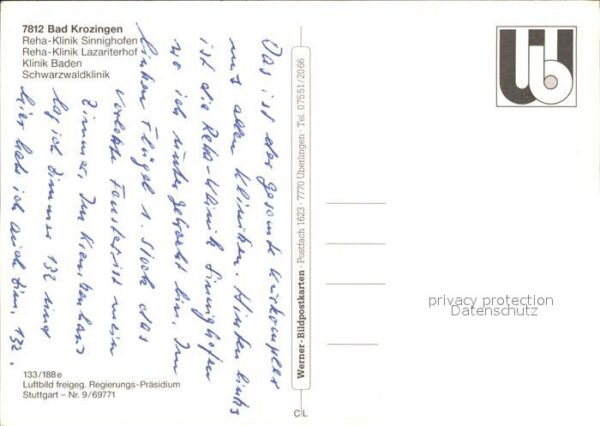 7812 Bad Krozingen
Reha-Klinik Sinnighofen
Reha-Klinik Lazariterhof
Klinik Baden
Schwarzwaldklinik
Das ist der gesamte Kurkomplex
mit allen Kliniken. Hinten links
ist die Reha-Klinik Sinnighofen
wo ich untergebracht bin. Im
linken Flügel 1. Stock das
vorletzte Fenster ist mein
Zimmer. Im
lag ich Zimmer 132 und
hier habe ich auch Zim. 132.
133/188e
Luftbild freigeg. Regierungs-Präsidium
Stuttgart – Nr. 9/69771
Werner-Bildpostkarten · Postfach 1623 · 7770 Überlingen · Tel. 07551/2066
CL
privacy protection
Datenschutz